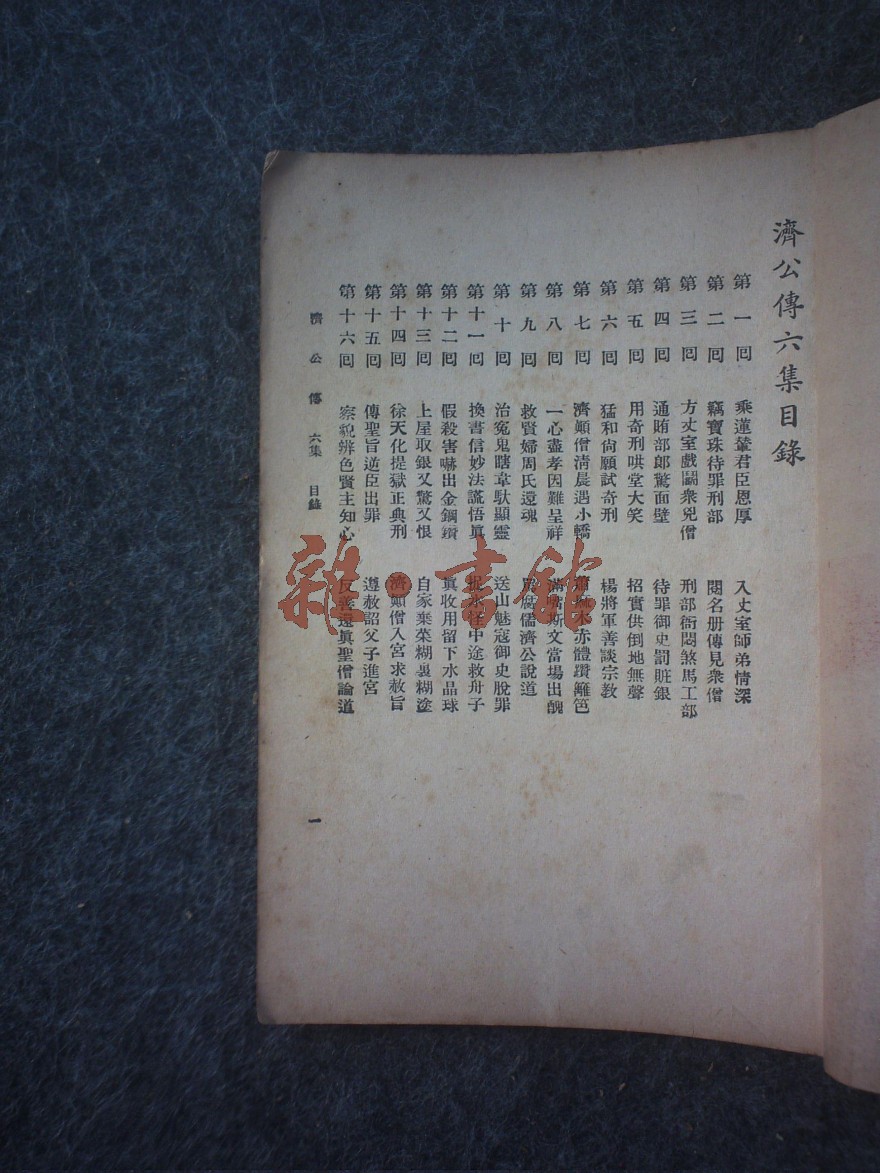 濟公傳六集目錄
第一回 乘蓮輦君臣恩厚 入丈室師弟情深
第二回 竊寶珠待罪刑部 閱名册傳見衆僧
第三回 方丈室戲鬭衆兇僧 刑部衙悶煞馬工部
第四回 通賄部郎驚面壁 待罪御史罰賍銀
第五回 用奇刑哄堂大笑 招實供倒地無聲
第六回 猛和尙願試奇刑 楊將軍善談宗教
第七回 濟顚僧淸晨遇小轎 蕭麻木赤體躦籬笆
第八回 一心盡孝因難呈祥 滿嘴斯文當場出醜
第九回 救賢婦周氏還魂 腐儒濟公說道
第十回 治寃鬼瞎韋馱顯靈 送山魅寇御史脫罪
第十一回 換書信妙法謊悟眞 捉水怪中途救舟子
第十二回 假殺害嚇出金鋼鑽 眞收用留下水晶球
第十三回 上屋取銀又驚又恨 自家棄菜糊裏糊塗
第十四回 徐天化提獄正典刑 濟顚僧入宮求赦旨
第十五回 傳聖旨逆臣出罪 遵赦詔父子進宮
第十六回 察貌辨色賢主知心 反善還眞聖僧論道
濟公傳 六集 目錄
一
雜·書館